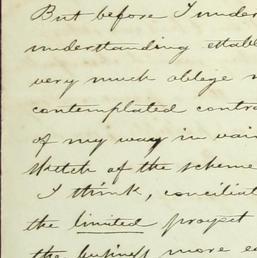 But before I under
understanding establ
very much oblige
contemplated contra
of my way in vain
sketch of the scheme
I think, conciliat
the limited project
the business more ea